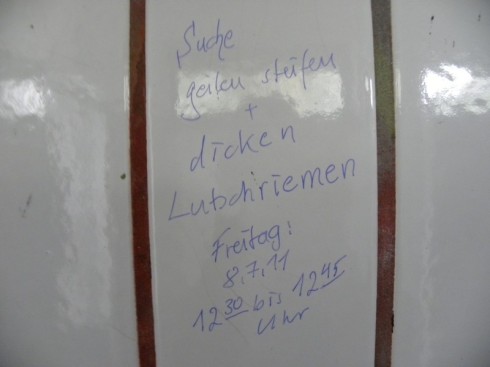 Suche
geilen steifen
+
dicken
Lutschriemen
Freitag:
8.7.11
12 30 bis 12 45
Uhr